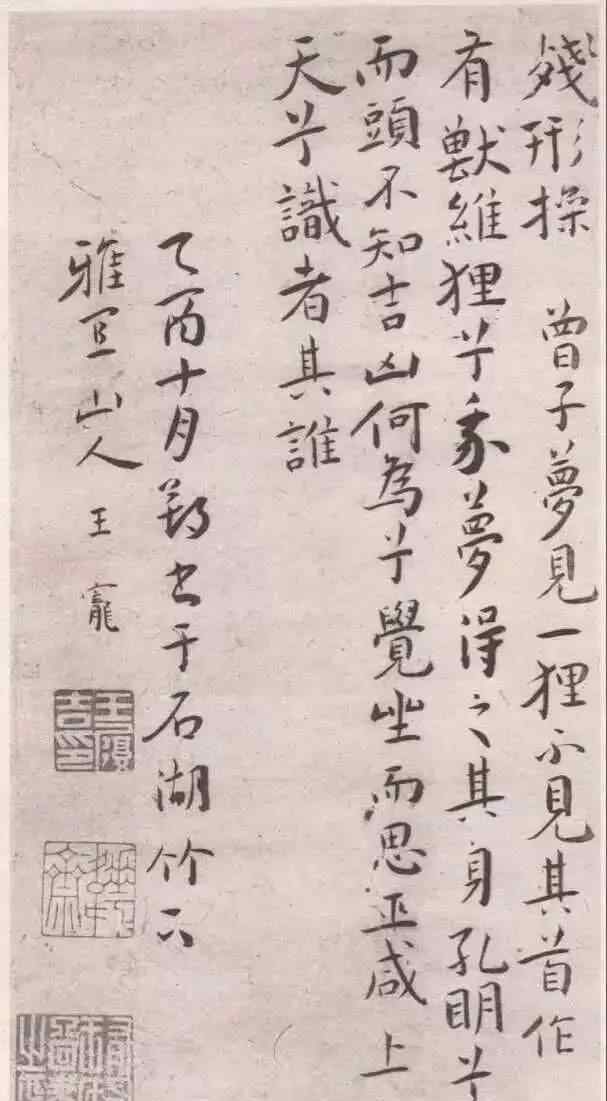 殘形操　曾子夢見一狸不見其首作
有獸維狸兮我夢得之其身孔明兮
而頭不知吉凶何為兮覺坐而思巫咸上
天兮識者其誰
乙酉十月朔書于石湖竹下
雅宜山人王寵